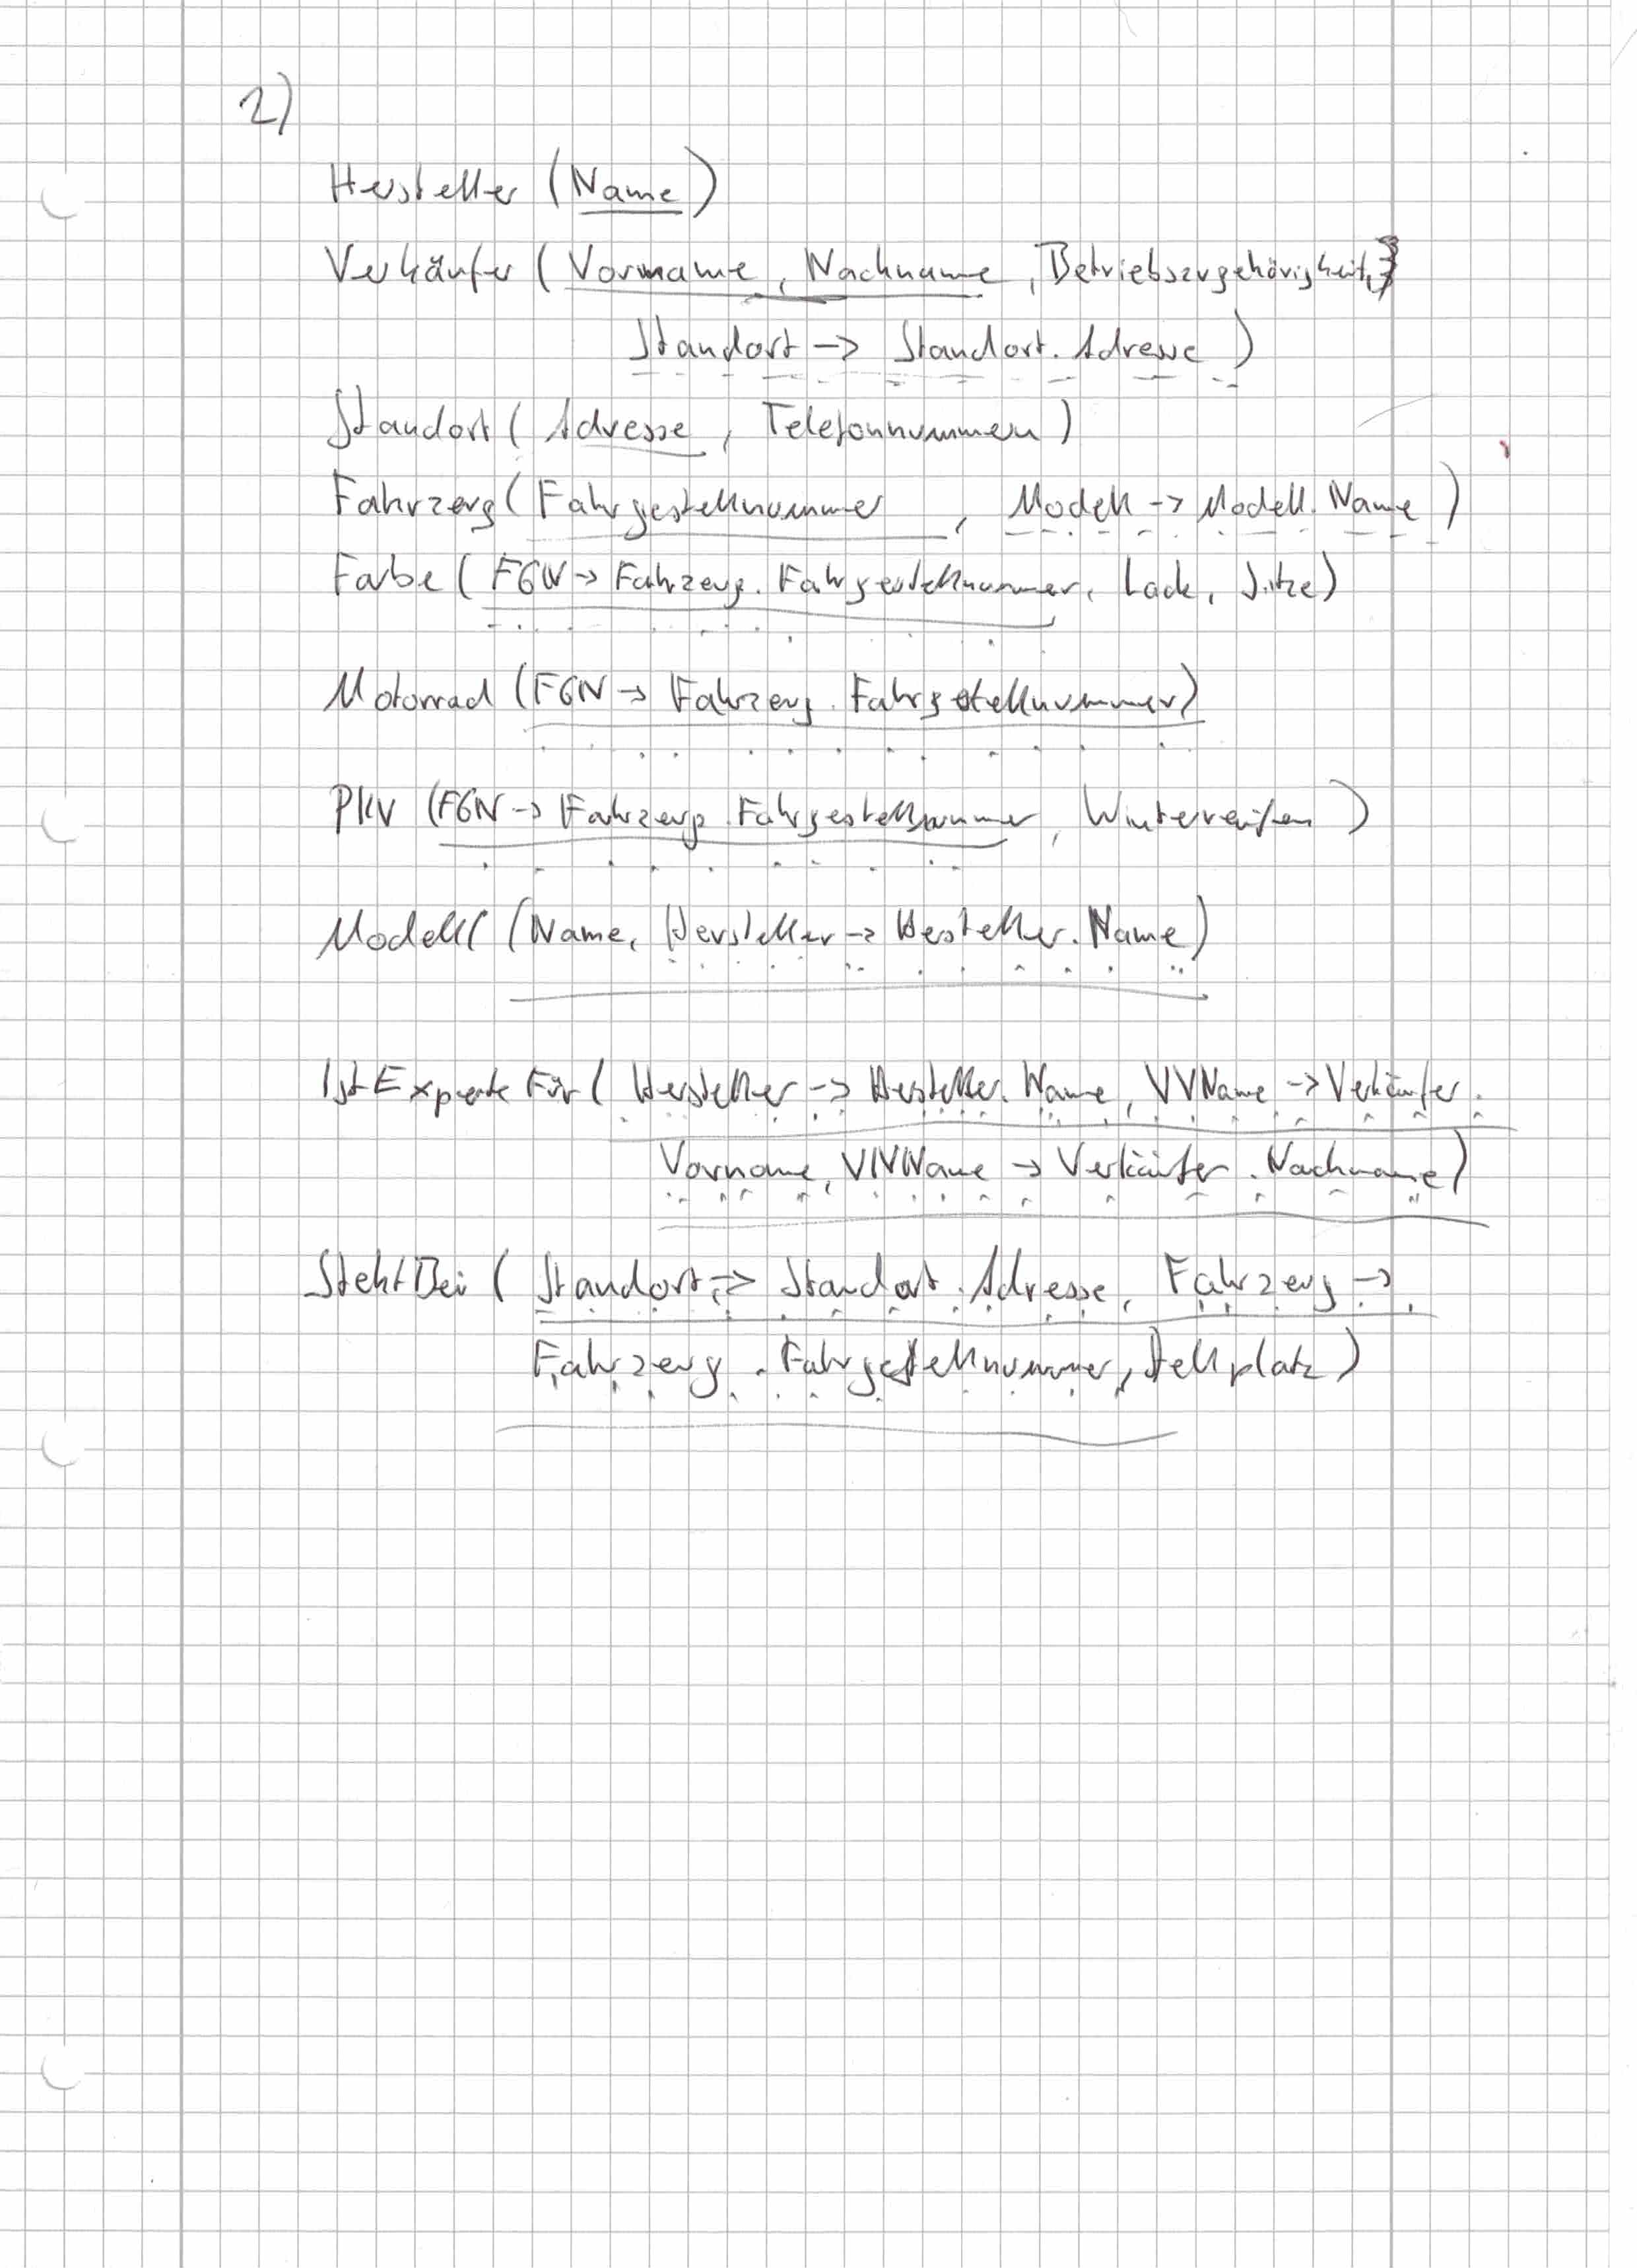 2)
Hersteller (Name)
Verkäufer (Vorname, Nachname, Betriebszugehörigkeit,
Standort -> Standort.Adresse)
Standort (Adresse, Telefonnummern)
Fahrzeug (Fahrgestellnummer, Modell -> Modell.Name)
Farbe (FGN -> Fahrzeug.Fahrgestellnummer, Lack, Sitze)
Motorrad (FGN -> Fahrzeug.Fahrgestellnummer)
PKW (FGN -> Fahrzeug.Fahrgestellnummer, Winterreifen)
Modell (Name, Hersteller -> Hersteller.Name)
IstExperteFür (Hersteller -> Hersteller.Name, VVName -> Verkäufer.
Vorname, VNName -> Verkäufer.Nachname)
StehtBei (Standort -> Standort.Adresse, Fahrzeug ->
Fahrzeug.Fahrgestellnummer, Stellplatz)